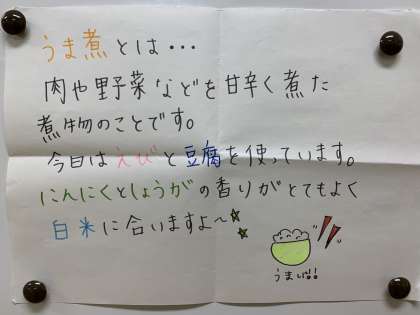 うま煮とは・・・
肉や野菜などを甘辛く煮た
煮物のことです。
今日はえびと豆腐を使っています。
にんにくとしょうがの香りがとてもよく
白米に合いますよ〜
うまい!!